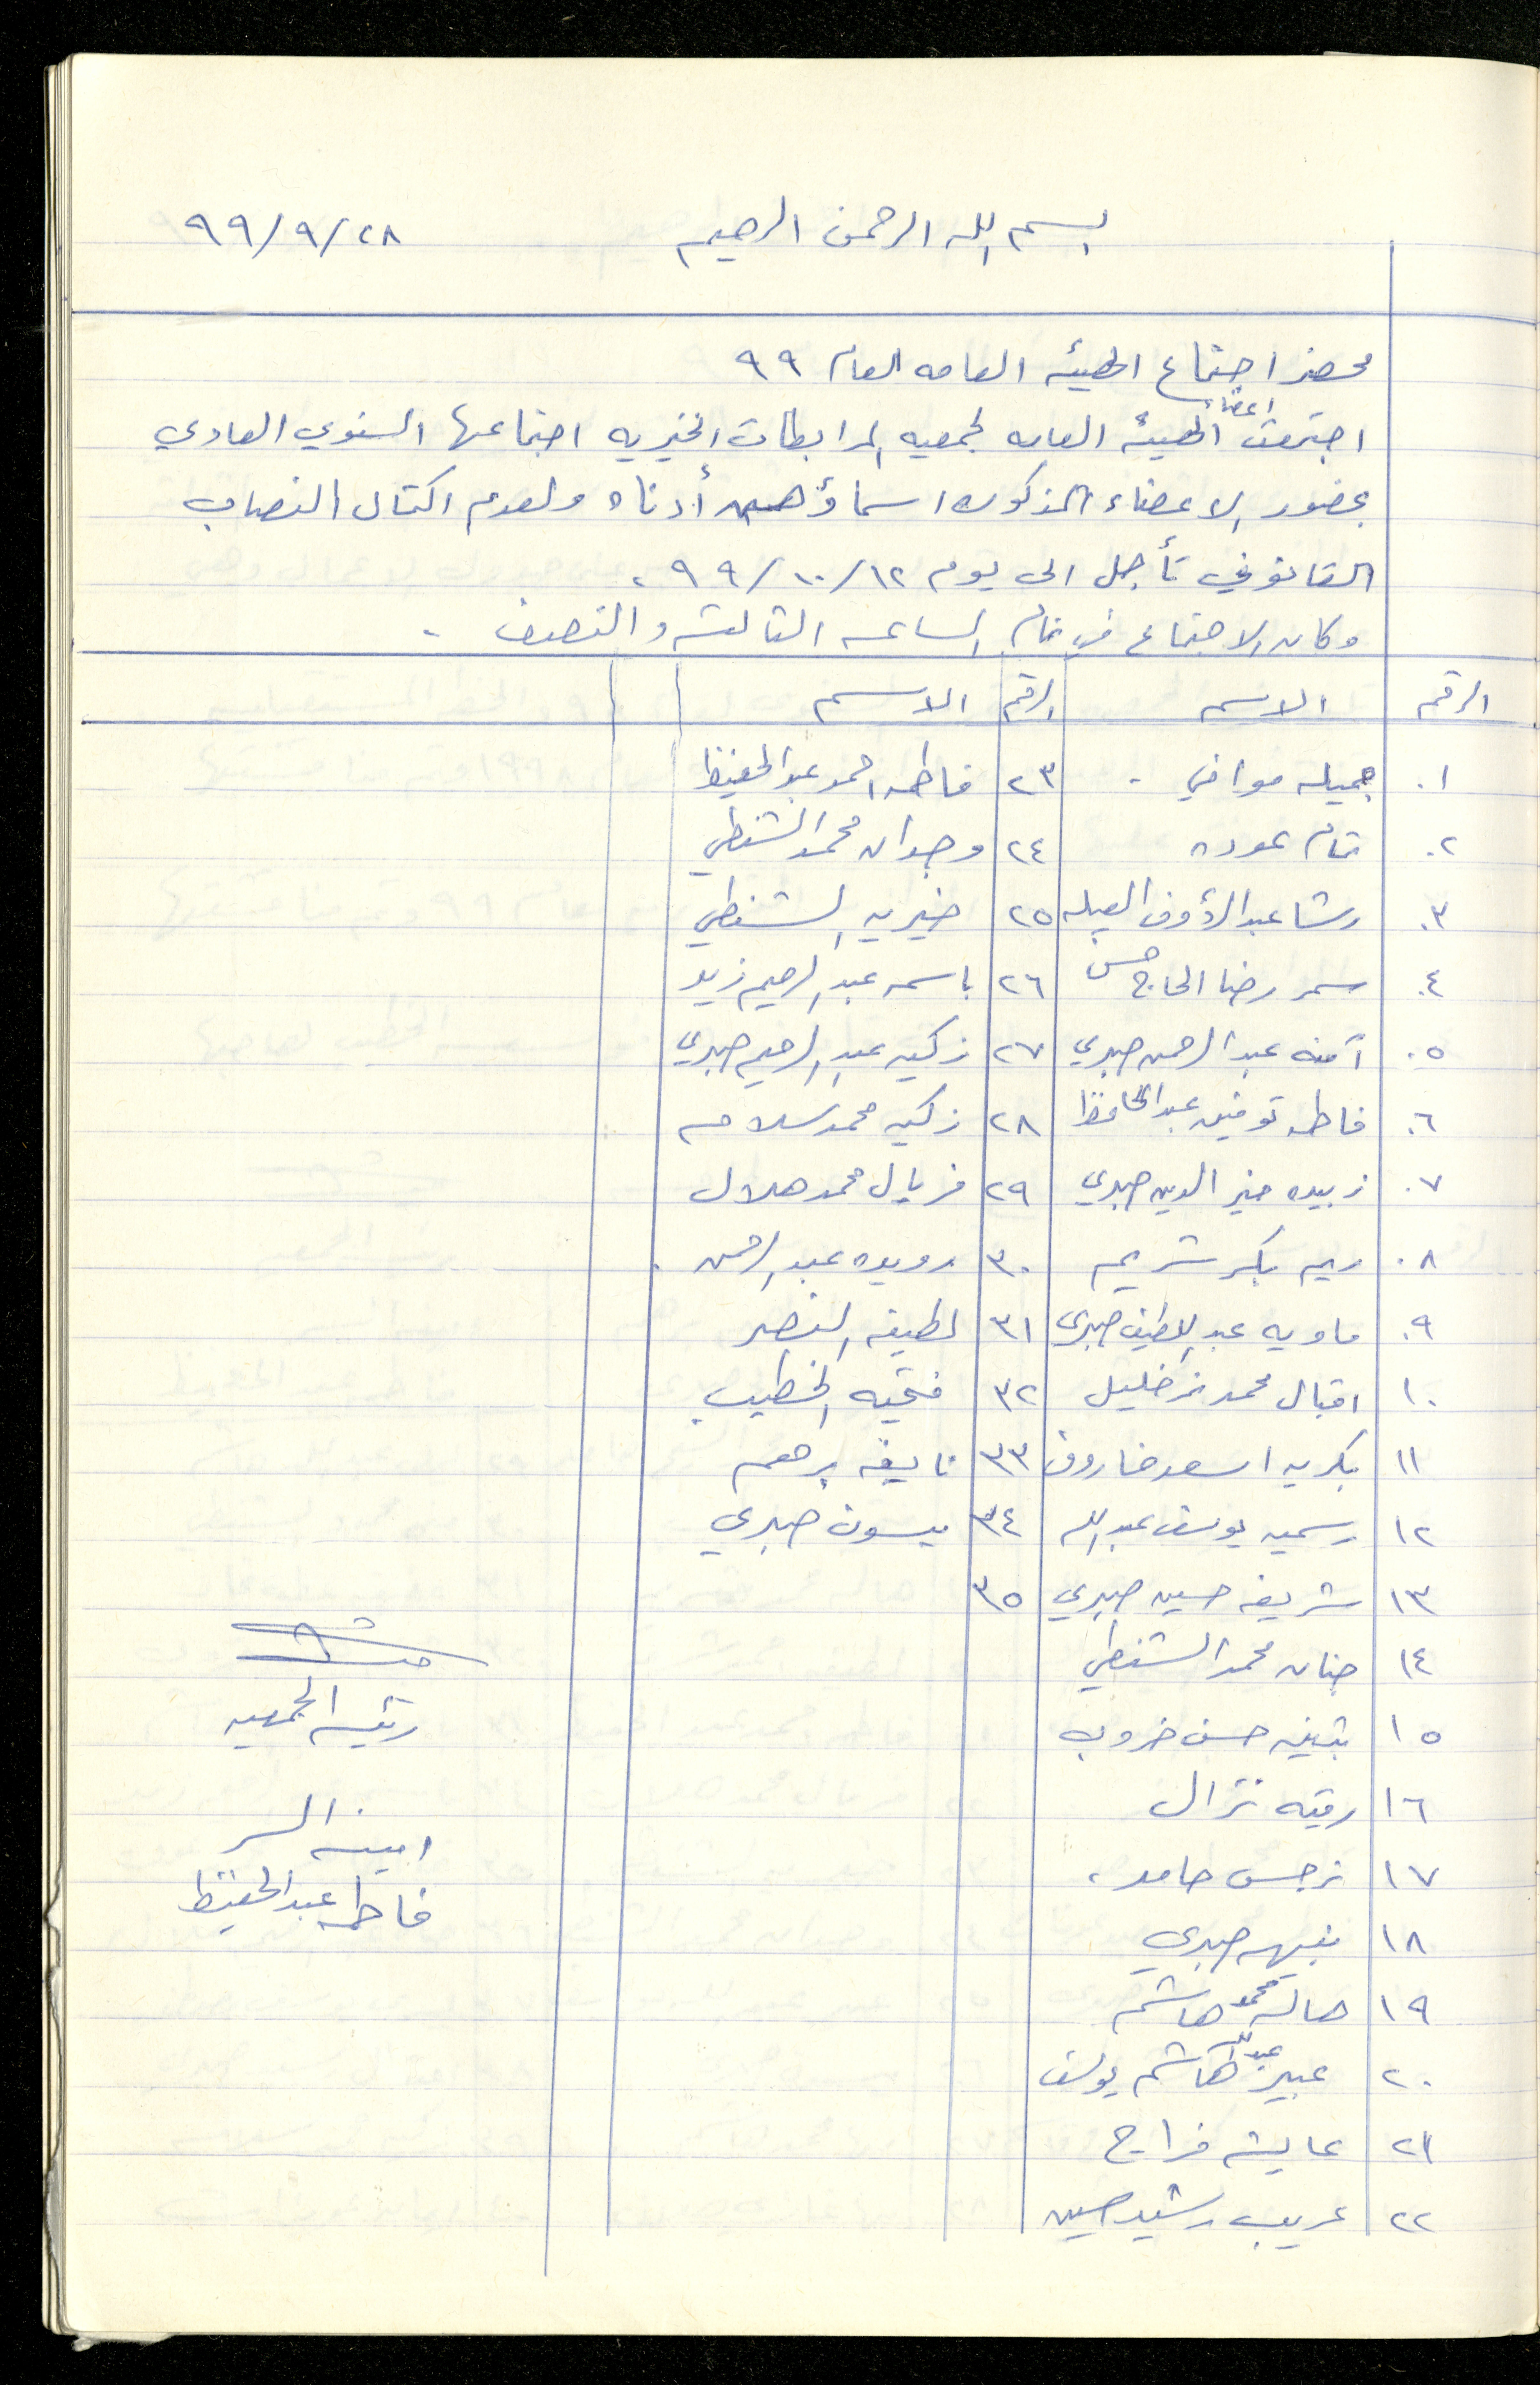 بسم الله الرحمن الرحيم ٩٩/٩/٢٨
محضر اجتماع الهيئه العامه لعام ٩٩
اجتمعت اعضاء الهيئة العامه لجمعيه المرابطات الخيريه اجتماعها السنوي العادي
بحضور الاعضاء المذكوره اسماؤهن أدناه ولعدم اكتمال النصاب
القانوني تأجل الى يوم ٩٩/١٠/١٢ .
وكان الاجتماع في تمام الساعه الثالثه والنصف .
الرقم الاسم الرقم الاسم
١. جميله موافي . ٢٣ فاطمه احمد عبدالحفيظ
٢. تمام عوده ٢٤ وجدان محمد الشنطي
٣. رشا عبدالرؤوف العبله ٢٥ خيريه الشنطي
٤. سمر رضا الحاج حسن ٢٦ باسمه عبد الرحيم زيد
٥. آمنه عبد الرحمن صبري ٢٧ زكيه عبد الرحيم صبري
٦. فاطمه توفيق عبدالحافظ ٢٨ زكيه محمد سلامه
٧. زبيده خير الدين صبري ٢٩ فريال محمد هلال
٨. ريم بكر شريم ٣٠ رويده عبد الرحمن .
٩. ماويه عبد اللطيف صبري ٣١ لطيفه النصر
١٠. اقبال محمد نمر خليل ٣٢ فتحيه الخطيب
١١ بكريه اسعد فاروق ٣٣ نايفه برهم
١٢ رسميه يوسف عبدالله ٣٤ ميسون صبري
١٣ شريفه حسين صبري ٣٥
١٤ حنان محمد الشنطي
رئيسه الجمعيه
١٥ بثينه حسن خروب
١٦ رقيه نزال
امينه السر
١٧ نرجس حامد .
فاطمه عبدالحفيظ
١٨ نبيهه صبري
١٩ هاله محمد هاشم
٢٠ عبير عبد الهاشم يوسف
٢١ عايشه فراج
٢٢ عريب رشيد حسين